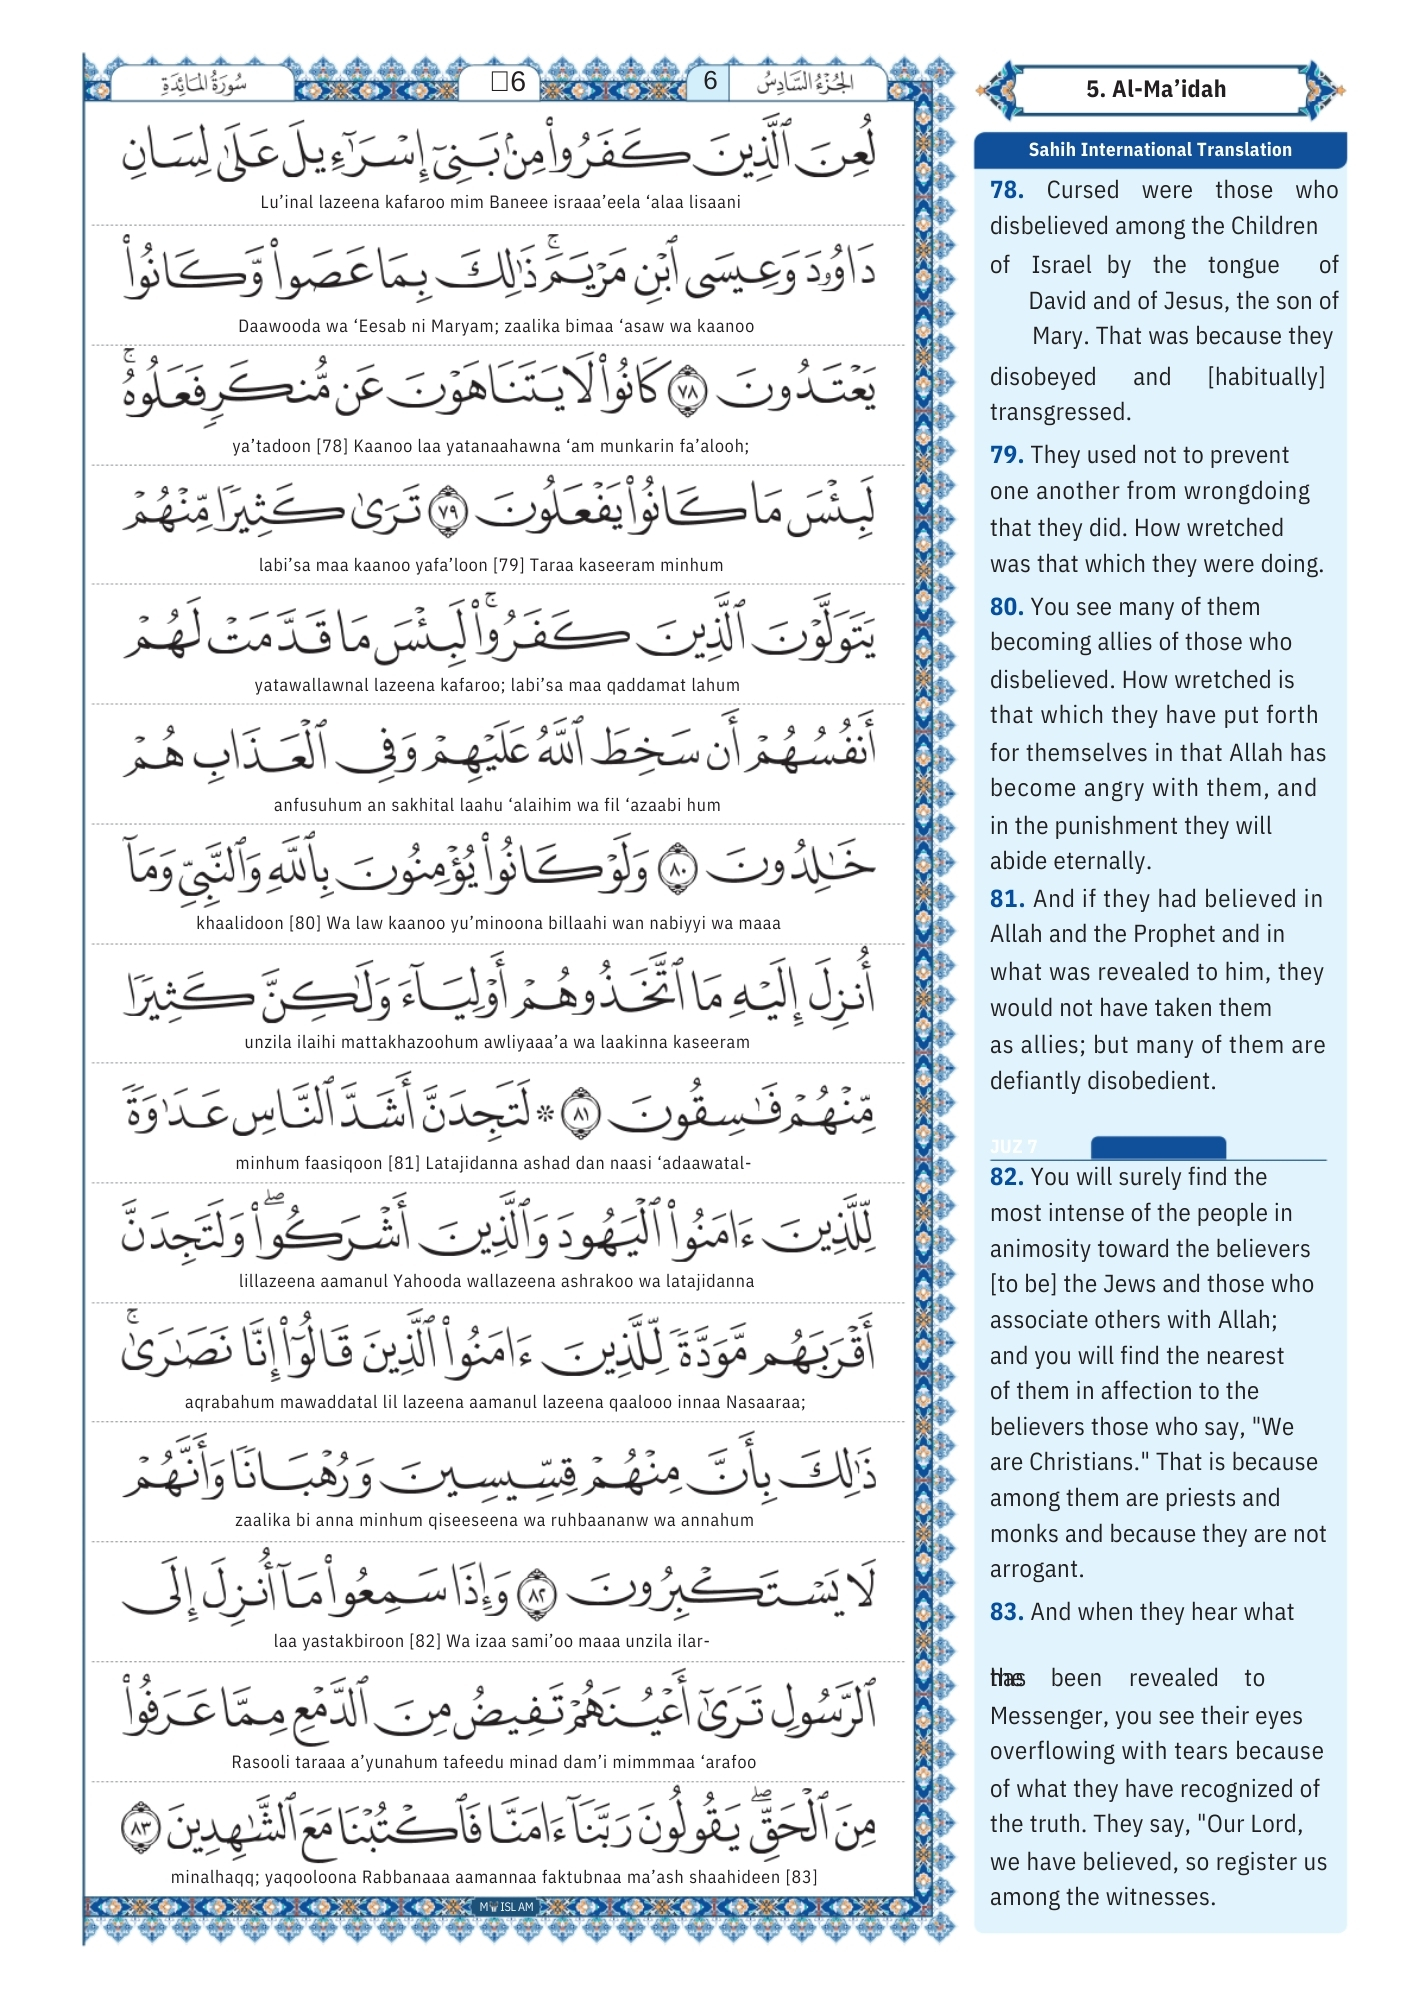 سُورَةُ المَائِدَةِ
6
6
الجُزْءُ السَّادِسُ
لُعِنَ ٱلَّذِينَ كَفَرُوا۟ مِنۢ بَنِىٓ إِسْرَٰٓءِيلَ عَلَىٰ لِسَانِ
Lu’inal lazeena kafaroo mim Baneee israaa’eela ‘alaa lisaani
دَاوُۥدَ وَعِيسَى ٱبْنِ مَرْيَمَ ۚ ذَٰلِكَ بِمَا عَصَوا۟ وَّكَانُوا۟
Daawooda wa ‘Eesab ni Maryam; zaalika bimaa ‘asaw wa kaanoo
يَعْتَدُونَ ٧٨ كَانُوا۟ لَا يَتَنَاهَوْنَ عَن مُّنكَرٍ فَعَلُوهُ ۚ
ya’tadoon [78] Kaanoo laa yatanaahawna ‘am munkarin fa’alooh;
لَبِئْسَ مَا كَانُوا۟ يَفْعَلُونَ ٧٩ تَرَىٰ كَثِيرًا مِّنْهُمْ
labi’sa maa kaanoo yafa’loon [79] Taraa kaseeram minhum
يَتَوَلَّوْنَ ٱلَّذِينَ كَفَرُوا۟ ۚ لَبِئْسَ مَا قَدَّمَتْ لَهُمْ
yatawallawnal lazeena kafaroo; labi’sa maa qaddamat lahum
أَنفُسُهُمْ أَن سَخِطَ ٱللَّهُ عَلَيْهِمْ وَفِى ٱلْعَذَابِ هُمْ
anfusuhum an sakhital laahu ‘alaihim wa fil ‘azaabi hum
خَٰلِدُونَ ٨٠ وَلَوْ كَانُوا۟ يُؤْمِنُونَ بِٱللَّهِ وَٱلنَّبِىِّ وَمَآ
khaalidoon [80] Wa law kaanoo yu’minoona billaahi wan nabiyyi wa maaa
أُنزِلَ إِلَيْهِ مَا ٱتَّخَذُوهُمْ أَوْلِيَآءَ وَلَٰكِنَّ كَثِيرًا
unzila ilaihi mattakhazoohum awliyaaa’a wa laakinna kaseeram
مِّنْهُمْ فَٰسِقُونَ ٨١ * لَتَجِدَنَّ أَشَدَّ ٱلنَّاسِ عَدَٰوَةً
minhum faasiqoon [81] Latajidanna ashad dan naasi ‘adaawatal-
لِّلَّذِينَ ءَامَنُوا۟ ٱلْيَهُودَ وَٱلَّذِينَ أَشْرَكُوا۟ ۖ وَلَتَجِدَنَّ
lillazeena aamanul Yahooda wallazeena ashrakoo wa latajidanna
أَقْرَبَهُم مَّوَدَّةً لِّلَّذِينَ ءَامَنُوا۟ ٱلَّذِينَ قَالُوٓا۟ إِنَّا نَصَٰرَىٰ ۚ
aqrabahum mawaddatal lil lazeena aamanul lazeena qaalooo innaa Nasaaraa;
ذَٰلِكَ بِأَنَّ مِنْهُمْ قِسِّيسِينَ وَرُهْبَانًا وَأَنَّهُمْ
zaalika bi anna minhum qiseeseena wa ruhbaananw wa annahum
لَا يَسْتَكْبِرُونَ ٨٢ وَإِذَا سَمِعُوا۟ مَآ أُنزِلَ إِلَى
laa yastakbiroon [82] Wa izaa sami’oo maaa unzila ilar-
ٱلرَّسُولِ تَرَىٰٓ أَعْيُنَهُمْ تَفِيضُ مِنَ ٱلدَّمْعِ مِمَّا عَرَفُوا۟
Rasooli taraaa a’yunahum tafeedu minad dam’i mimmmaa ‘arafoo
مِنَ ٱلْحَقِّ ۖ يَقُولُونَ رَبَّنَآ ءَامَنَّا فَٱكْتُبْنَا مَعَ ٱلشَّٰهِدِينَ ٨٣
minalhaqq; yaqooloona Rabbanaaa aamannaa faktubnaa ma’ash shaahideen [83]
5. Al-Ma’idah
Sahih International Translation
78. Cursed were those who
disbelieved among the Children
of Israel by the tongue of
David and of Jesus, the son of
Mary. That was because they
disobeyed and [habitually]
transgressed.
79. They used not to prevent
one another from wrongdoing
that they did. How wretched
was that which they were doing.
80. You see many of them
becoming allies of those who
disbelieved. How wretched is
that which they have put forth
for themselves in that Allah has
become angry with them, and
in the punishment they will
abide eternally.
81. And if they had believed in
Allah and the Prophet and in
what was revealed to him, they
would not have taken them
as allies; but many of them are
defiantly disobedient.
JUZ 7
82. You will surely find the
most intense of the people in
animosity toward the believers
[to be] the Jews and those who
associate others with Allah;
and you will find the nearest
of them in affection to the
believers those who say, "We
are Christians." That is because
among them are priests and
monks and because they are not
arrogant.
83. And when they hear what
been revealed to
Messenger, you see their eyes
overflowing with tears because
of what they have recognized of
the truth. They say, "Our Lord,
we have believed, so register us
among the witnesses.